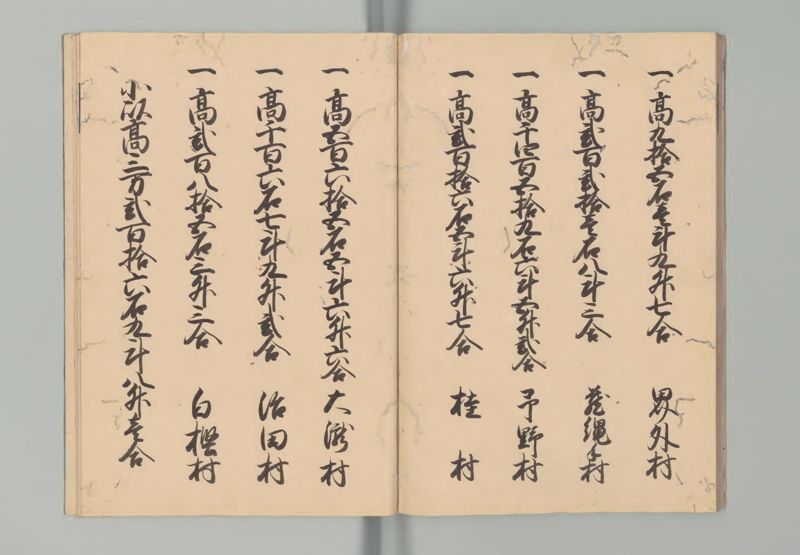 一高九拾五石壱斗九升七合 界外村
一高弐百弐拾壱石八斗三合 蔵縄手村
一高千四百五拾九石六斗五升弐合 予野村
一高弐百拾六石五斗六升七合 桂村
一高五百六拾五石五斗六升六合 大滝村
一高千百六石七斗九升弐合 治田村
一高弐百八拾五石三升三合 白樫村
小以高三万弐百拾六石九斗八升壱合